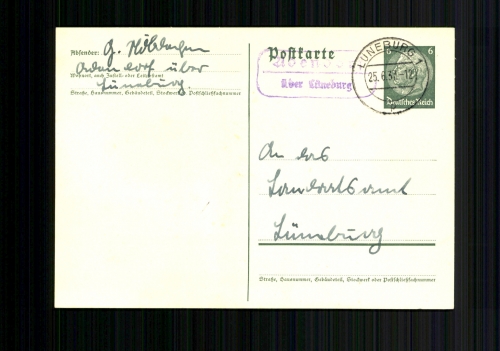 Absender: G.
über
Wohnort, auch Zustell- oder Leitpostamt
Lüneburg.
Straße, Hausnummer, Gebäudeteil, Stockwerk od. Postschließfachnummer
Postkarte
Über Lüneburg
LÜNEBURG 1
25.6.37.-12
6 6
Deutsches Reich
An das
Landratsamt
Lüneburg
Straße, Hausnummer, Gebäudeteil, Stockwerk oder Postschließfachnummer